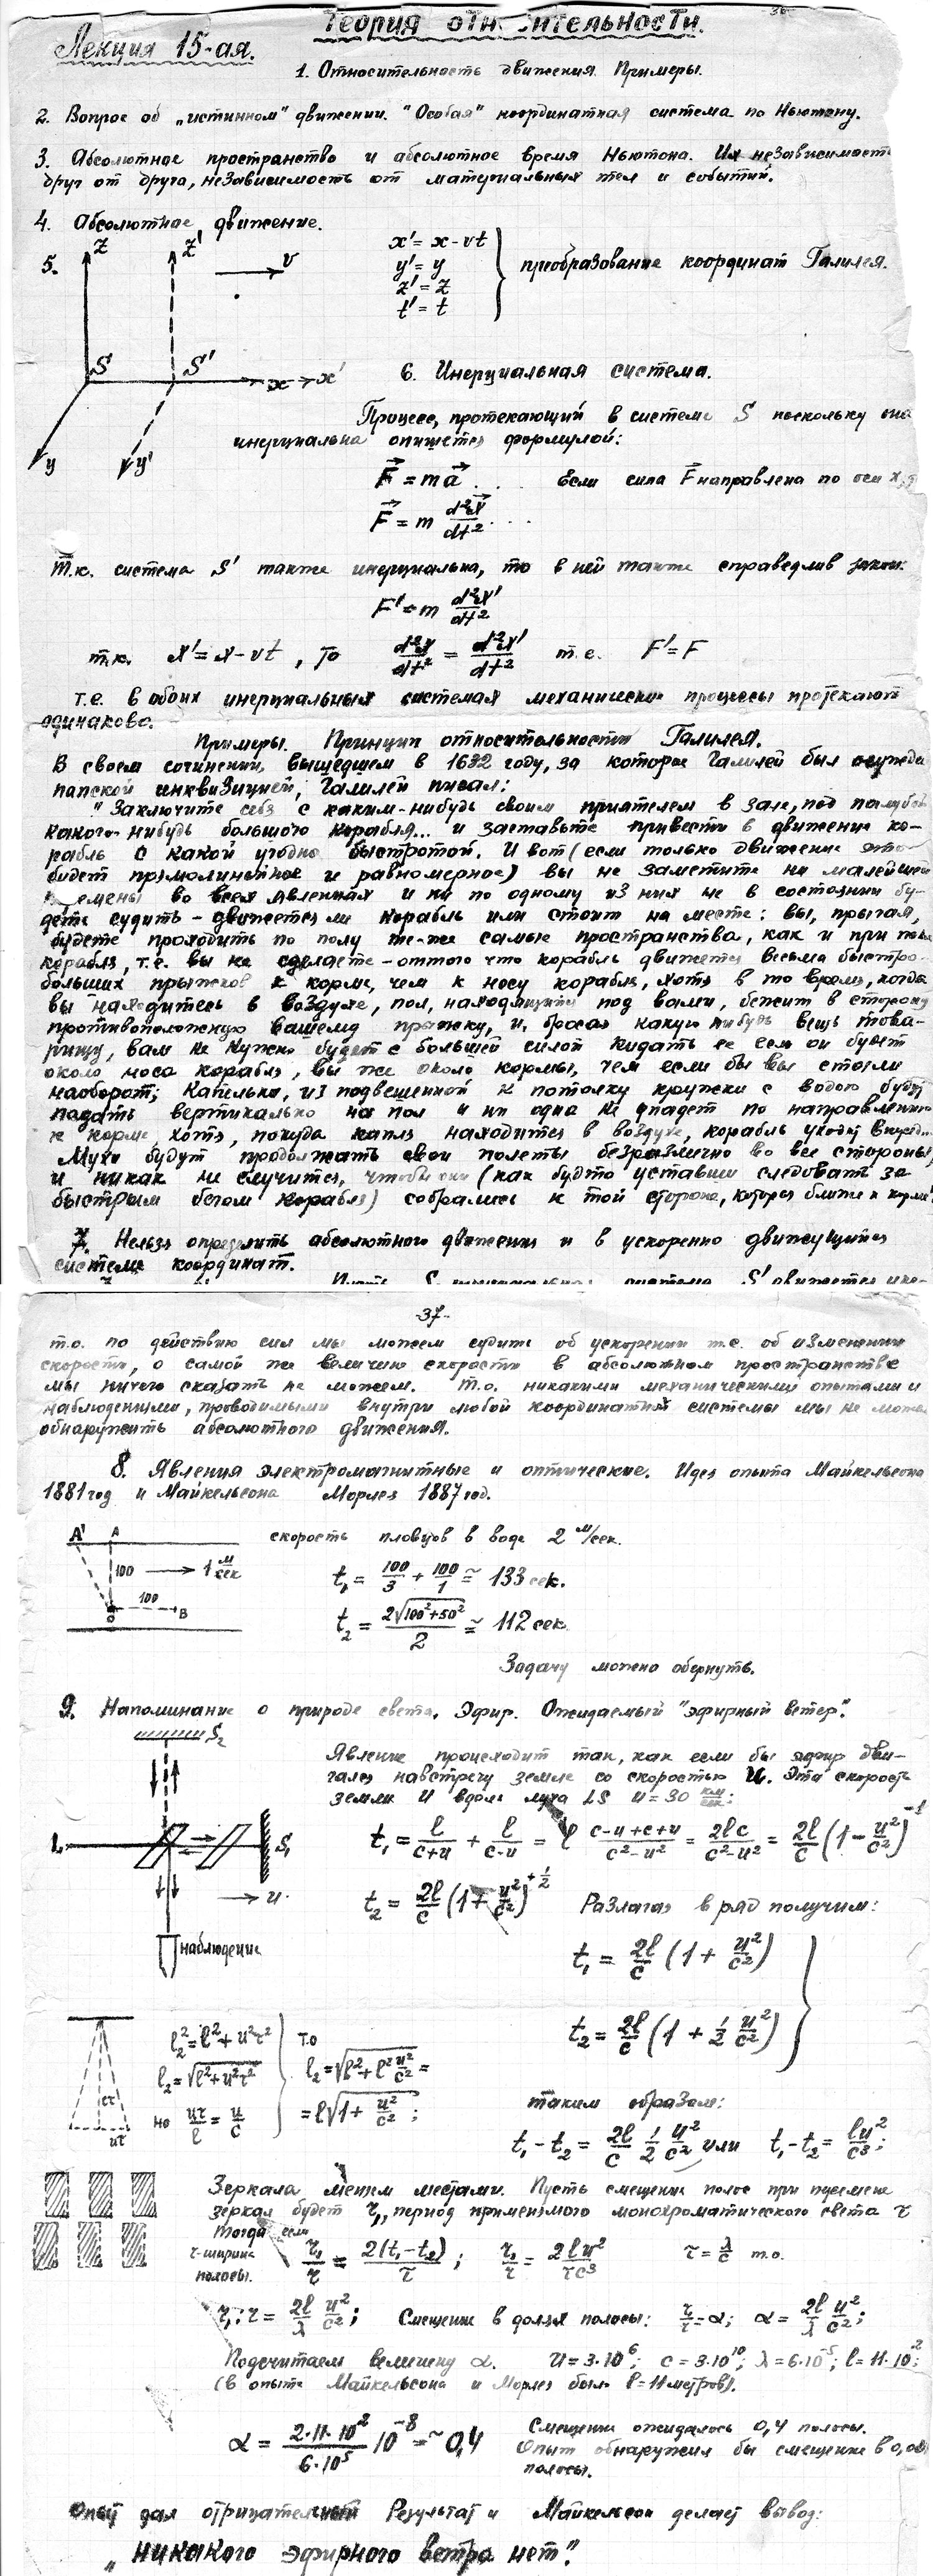 36
Теория относительности.
Лекция 15-ая.
1. Относительность движения. Примеры.
2. Вопрос об „истинном" движении. "Особая" координатная система по Ньютону.
3. Абсолютное пространство и абсолютное время Ньютона. Их независимость
друг от друга, независимость от материальных тел и событий.
4. Абсолютное движение.
5. z z' v
x' = x - vt
y' = y
z' = z
t' = t
преобразование координат Галилея.
S S' x x'
y y'
6. Инерциальная система.
Процесс, протекающий в системе S поскольку она
инерциальна опишется формулой:
F = ma . . . Если сила F направлена по оси x,
F = m d²x/dt² . . .
Т.к. система S' также инерциальна, то в ней также справедлив закон:
F' = m d²x'/dt²
т.к. x' = x - vt , то d²x/dt² = d²x'/dt² т.е. F' = F
т.е. в обоих инерциальных системах механически процессы протекают
одинаково.
Примеры. Принцип относительности Галилея.
В своем сочинении, вышедшем в 1632 году, за которое Галилей был осужден
папской инквизицией, Галилей писал:
"Заключите себя с каким-нибудь своим приятелем в зале, под палубой
какого-нибудь большого корабля... и заставьте привести в движение ко-
рабль с какой угодно быстротой. И вот (если только движение это
будет прямолинейное и равномерное) вы не заметите ни малейшей
перемены во всех явлениях и ни по одному из них не в состоянии бу-
дете судить - движется ли корабль или стоит на месте: вы, прыгая,
будете проходить по полу те-же самые пространства, как и при
корабля, т.е. вы не сделаете - оттого что корабль движется весьма быстро -
больших прыжков к корме, чем к носу корабля, хотя в то время, когда
вы находитесь в воздухе, пол, находящийся под вами, бежит в сторону
противоположную вашему прыжку, и, бросая какую нибудь вещь това-
рищу, вам не нужно будет с большей силой кидать ее если он будет
около носа корабля, вы же около кормы, чем если бы вы стояли
наоборот; капельки, из подвешенной к потолку кружки с водою будут
падать вертикально на пол и ни одна не упадет по направлению
к корме, хотя, покуда капля находится в воздухе, корабль уходит вперед...
Мухи будут продолжать свои полеты безразлично во все стороны,
и никак не случится, чтобы они (как будто уставши следовать за
быстрым бегом корабля) собрались к той стороне, которая ближе к корме".
7. Нельзя определить абсолютного движения и в ускоренно движущейся
системе координат.
-37-
т.о. по действию сил мы можем судить об ускорении т.е. об изменении
скорости, о самой же величине скорости в абсолютном пространстве
мы ничего сказать не можем. Т.о. никакими механическими опытами и
наблюдениями, проводимыми внутри любой координатной системы мы не можем
обнаружить абсолютного движения.
8. Явления электромагнитные и оптические. Идея опыта Майкельсона
1881 год и Майкельсона Морлея 1887 год.
A' A
скорость пловцов в воде 2 м/сек.
100 1 м/сек
t₁ = 100/3 + 100/1 ≅ 133 сек.
100 B
t₂ = 2√100²+50² / 2 ≅ 112 сек.
Задачу можно обернуть.
9. Напоминание о природе света. Эфир. Ожидаемый "эфирный ветер".
S₂
Явление происходит так, как если бы эфир дви-
гался навстречу земле со скоростью u. Эта скорость
земли u вдоль луча LS u = 30 км/сек:
L S₁
t₁ = l/(c+u) + l/(c-u) = l (c-u+c+u)/(c²-u²) = 2lc/(c²-u²) = 2l/c (1 - u²/c²)⁻¹
u
t₂ = 2l/c (1 + u²/c²)^+½ Разлагая в ряд получим:
наблюдение
t₁ = 2l/c (1 + u²/c²)
t₂ = 2l/c (1 + ½ u²/c²)
l₂² = l² + u²τ² т.о
l₂ = √l²+u²τ² l₂ = √l² + l² u²/c² =
но uτ/l = u/c = l√1 + u²/c² ;
cτ
uτ
таким образом:
t₁ - t₂ = 2l/c ½ u²/c² или t₁ - t₂ = lu²/c³;
Зеркала меняем местами. Пусть смещение полос при перемене
зеркал будет r₁, период применяемого монохроматического света τ
тогда если
r-ширина
полосы.
r₁/r = 2(t₁-t₂)/τ ; r₁/r = 2lu²/τc³ τ = λ/c т.о.
r₁ : r = 2l/λ u²/c²; Смещение в долях полосы: r₁/r = α; α = 2l/λ u²/c²;
Подсчитаем величину α. u = 3·10⁶; c = 3·10¹⁰; λ = 6·10⁻⁵; l = 11·10²;
(в опыте Майкельсона и Морлея было l = 11 метров).
α = 2·11·10²/6·10⁵ 10⁻⁸ = ~0,4
Смещение ожидалось 0,4 полосы.
Опыт обнаружил бы смещение в
полосы.
Опыт дал отрицательный Результат и Майкельсон делает вывод:
„никакого эфирного ветра нет".